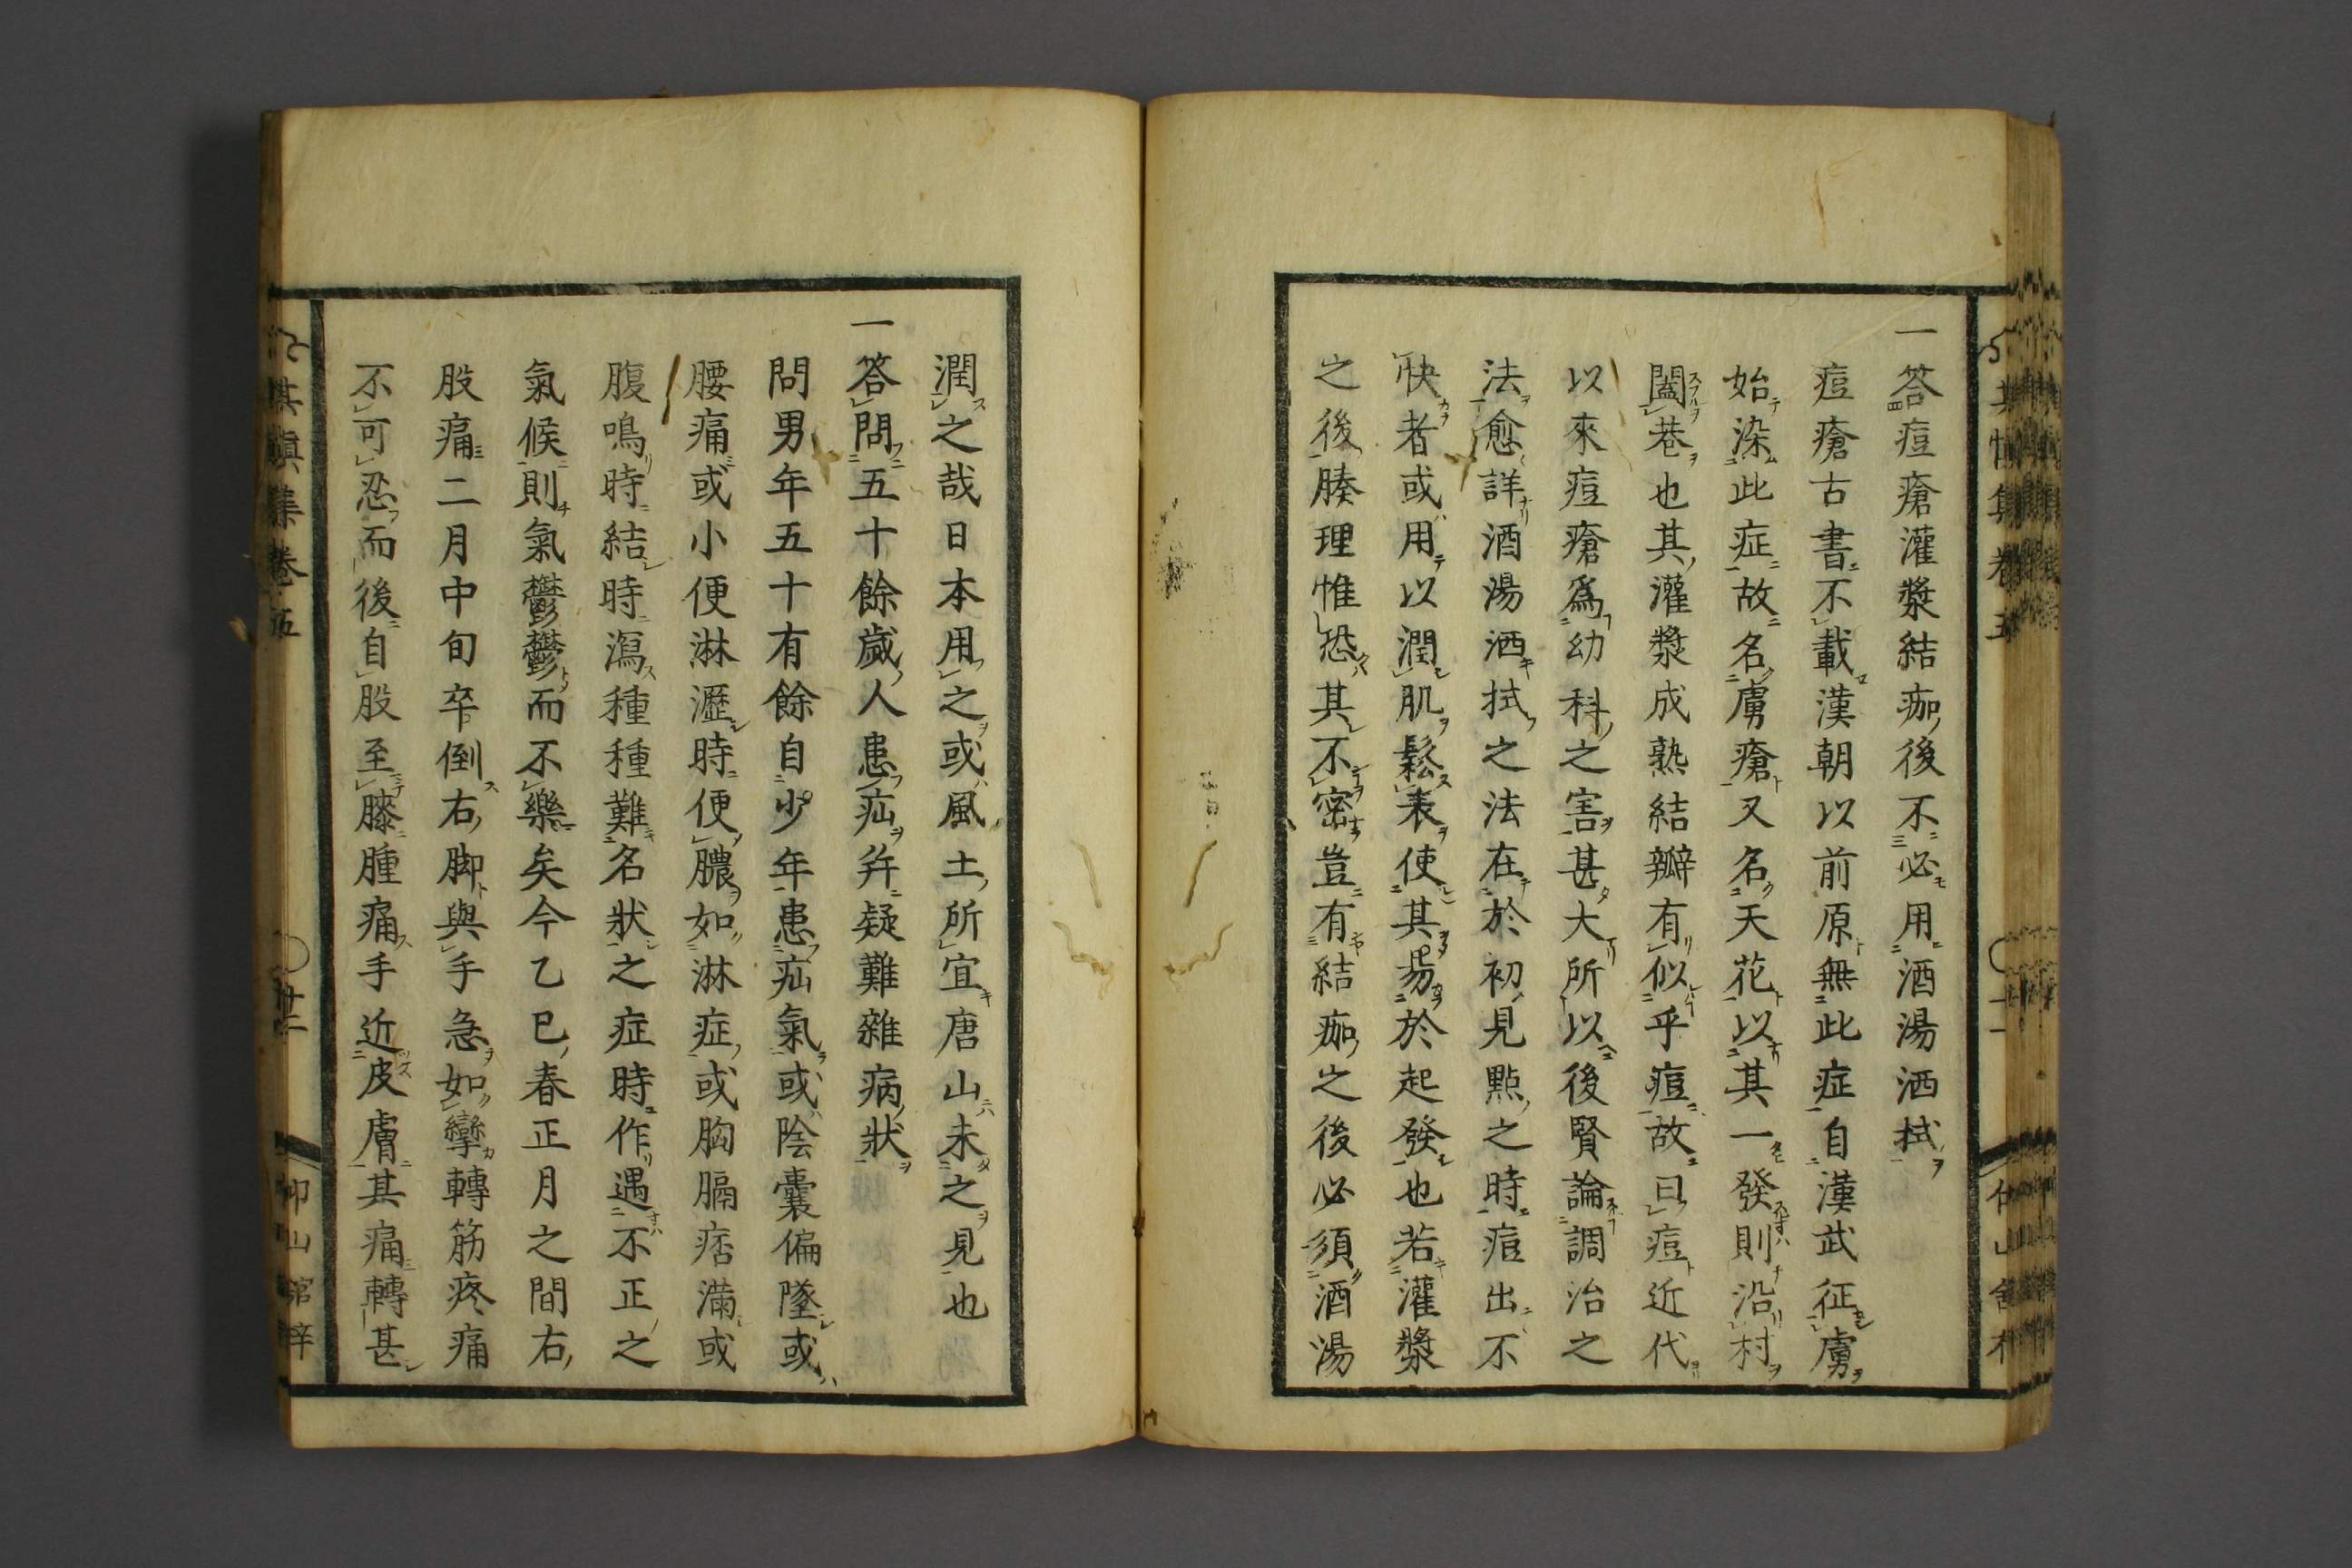 一答痘瘡灌漿結痂後不必用酒湯洒拭
痘瘡古書不載漢朝以前原無此症自漢武征虜
始染此症故名虜瘡又名天花以其一發則沿村
闔巷也其灌漿成熟結瓣有似乎痘故曰痘近代
以來痘瘡爲幼科之害甚大所以後賢論調治之
法愈詳酒湯洒拭之法在於初見點之時痘出不
快者或用以潤肌鬆表使其易於起發也若灌漿
之後腠理惟恐其不密豈有結痂之後必須酒湯
潤之哉日本用之或風土所宜唐山未之見也
一答問五十餘歲人患疝并疑難雜病狀
問男年五十有餘自少年患疝氣或陰囊偏墜或
腰痛或小便淋瀝時便膿如淋症或胸膈痞滿或
腹鳴時結時瀉種種難名狀之症時作遇不正之
氣候則氣鬱鬱而不樂矣今乙巳春正月之間右
股痛二月中旬卒倒右脚與手急如攣轉筋疼痛
不可忍而後自股至膝腫痛手近皮膚其痛轉甚
其慎集卷五
廿二
仰山館梓